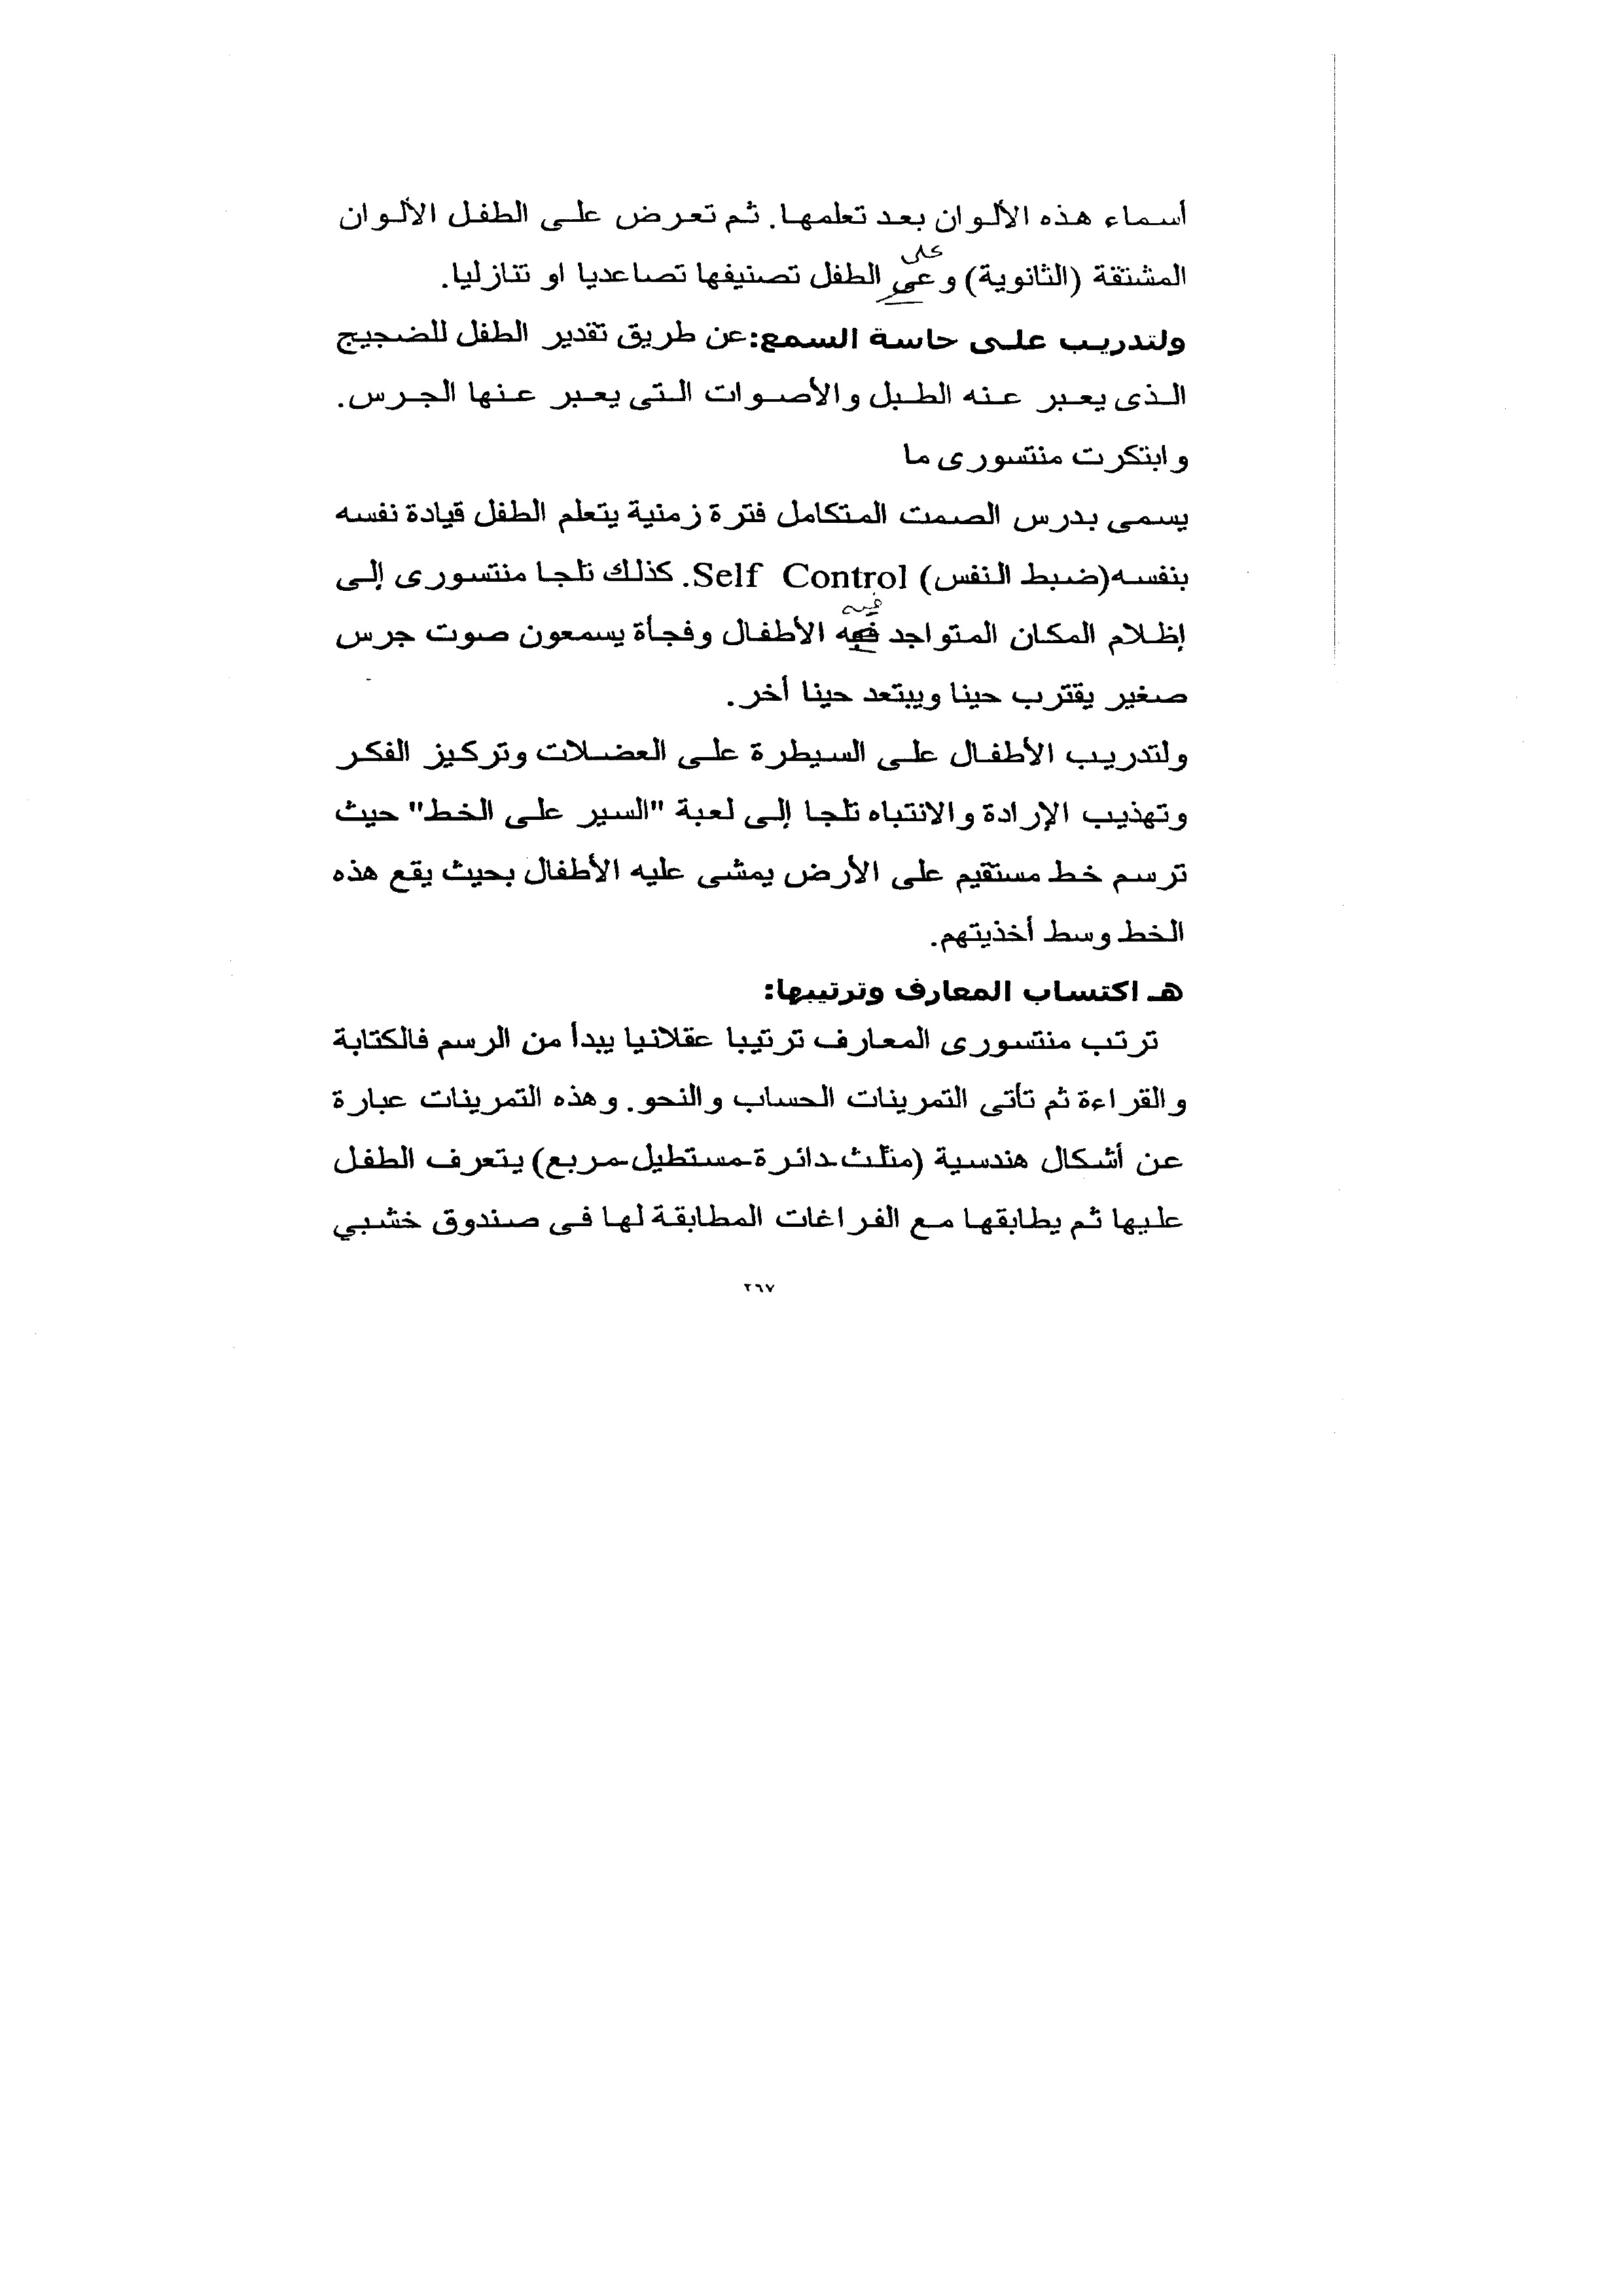 أسماء هذه الألوان بعد تعلمها. ثم تعرض على الطفل الألوان
على
المشتقة (الثانوية) وعى الطفل تصنيفها تصاعديا او تنازليا.
ولتدريب على حاسة السمع:عن طريق تقدير الطفل للضجيج
الذى يعبر عنه الطبل والأصوات التى يعبر عنها الجرس.
وابتكرت منتسورى ما
يسمى بدرس الصمت المتكامل فترة زمنية يتعلم الطفل قيادة نفسه
بنفسه(ضبط النفس) Self Control. كذلك تلجا منتسورى إلى
فيه
إظلام المكان المتواجد الأطفال وفجأة يسمعون صوت جرس
صغير يقترب حينا ويبتعد حينا أخر.
ولتدريب الأطفال على السيطرة على العضلات وتركيز الفكر
وتهذيب الإرادة والانتباه تلجا إلى لعبة "السير على الخط" حيث
ترسم خط مستقيم على الأرض يمشى عليه الأطفال بحيث يقع هذه
الخط وسط أخذيتهم.
هـ اكتساب المعارف وترتيبها:
ترتب منتسورى المعارف ترتيبا عقلانيا يبدأ من الرسم فالكتابة
والقراءة ثم تأتى التمرينات الحساب والنحو. وهذه التمرينات عبارة
عن أشكال هندسية (مثلث-دائرة-مستطيل-مربع) يتعرف الطفل
عليها ثم يطابقها مع الفراغات المطابقة لها فى صندوق خشبي
٢٦٧